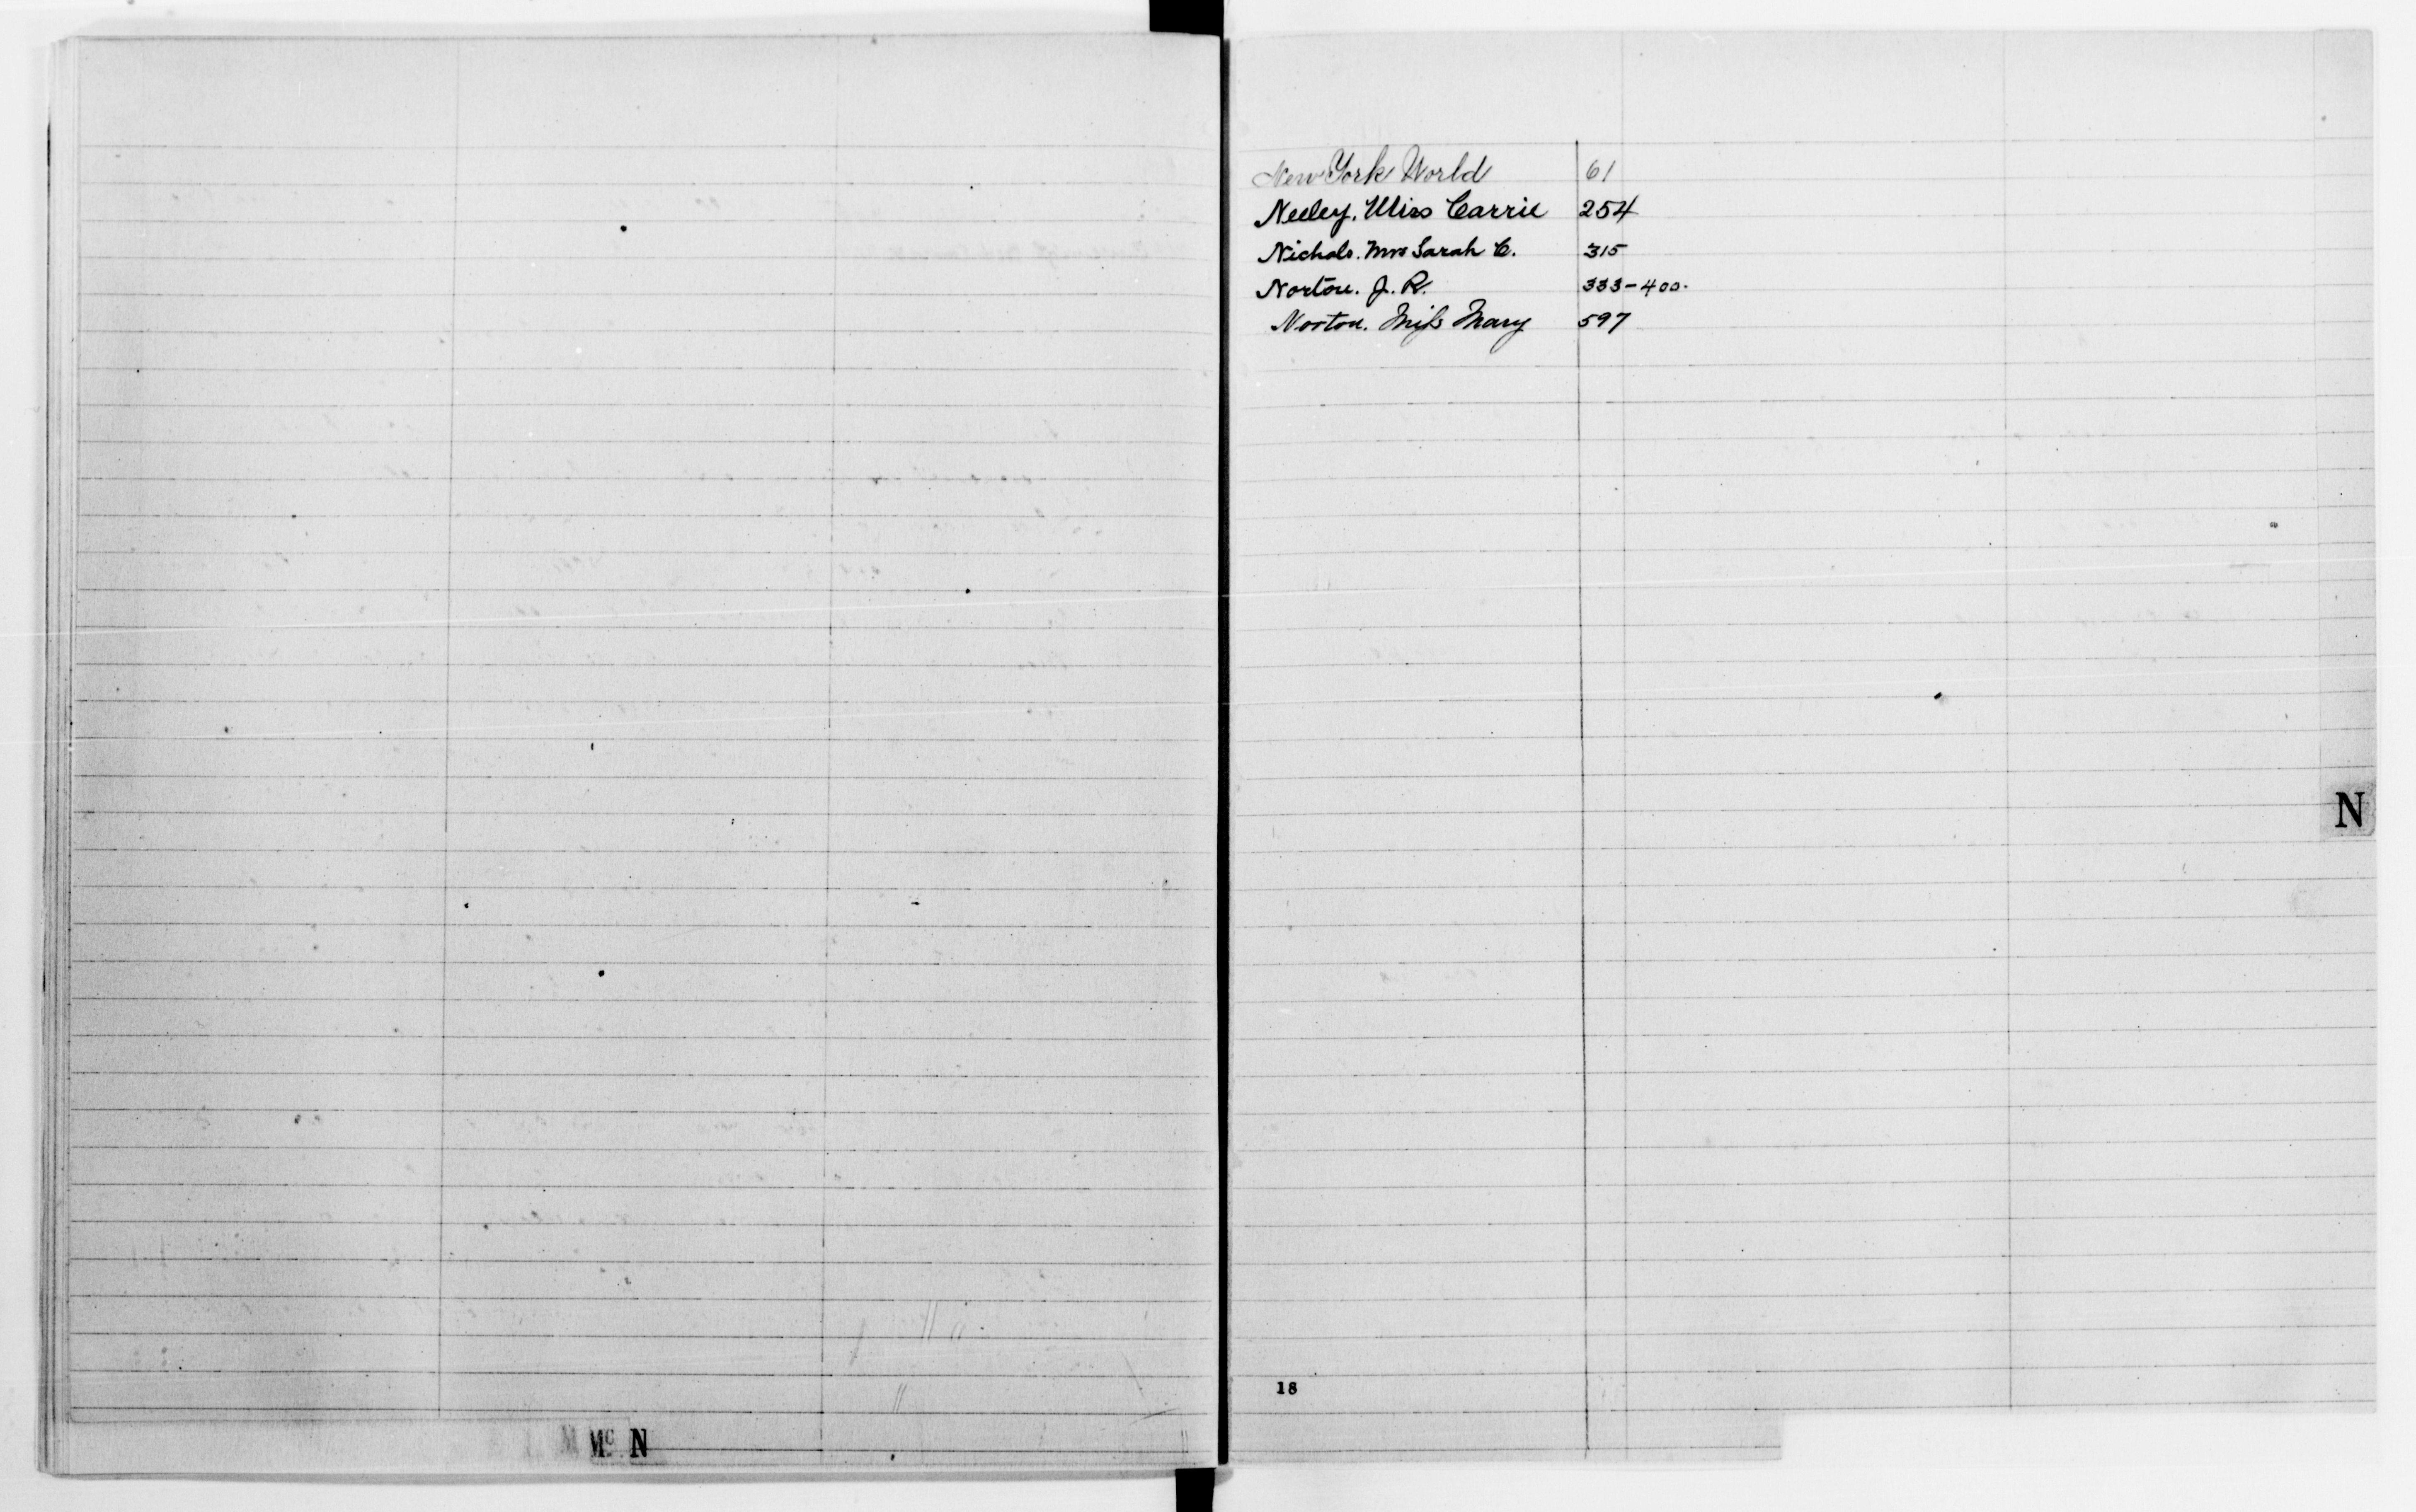 New York World 61
Neeley, Miss Carrie 254
Nichols. Mrs Sarah C. 315
Norton. J. R. 333-400.
Norton. Miſs Mary 597
N
18
M Mc N